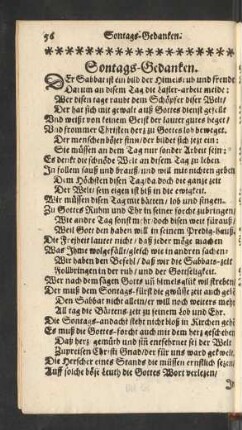 56 Sontags-Gedanken.
Sontags-Gedanken.
DEr Sabbat ist ein bild der Himels ruh und freude
Darum an disem Tag die laster-arbeit meide:
Wer disen tage raubt dem Schöpfer diser Welt/
Der hat sich mit gewalt auß Gottes dienst gestelt
Und weißt von keinem Geist der lauter gutes heget/
Und frommer Christen herz zu Gottes lob beweget.
Der menschen böser sinn/ der bilder sich jezt ein:
Sie müssen an dem Tag nur sonder Arbeit sein:
Es denkt die schnöde Welt an disem Tag zu leben
In follem sauß und brauß/ und will mit nichten geben
Dem Höchsten disen Tag/ da doch die ganze zeit
Der Welt/ sein eigen ist biß in die ewigkeit.
Wir müssen disen Tag mit bätten/ lob und singen/
Zu Gottes Ruhm und Ehr in seiner forcht zubringen/
Wie andre Tag
Weil Gott den haben will in seinem Predig-hauß.
Die Freiheit lautet nicht/ daß jeder möge machen
Was Jhme wolgefält/ gleich wie in andren sachen/
Wir haben den Befehl/ daß wir die Sabbats-zeit
Vollbringen in der ruh/ und der Gottseligkeit.
Wer nach dem sagen Gottes im himelsglük wil streben
Der muß dem Sontags-fürst die gewißte zeit auch geben
Den Sabbat nicht allein/ er will noch weiters mehr
All tag die Bättens-zeit zu seinem Lob und Ehr.
Die Sontags-andacht steht nicht bloß in Kirchen gehe
Es muß die Gottes-forcht auch mit dem herz geschehen
Daß herz/ gemüth und sinn entfehrnet sei der Welt
Zupreisen Christi Gnad/ der für uns ward gekwelt.
Die Herscher eines Stands die müssen ernstlich sezen/
Auff solche böse Leuth/ die Gottes Wort verlezen/